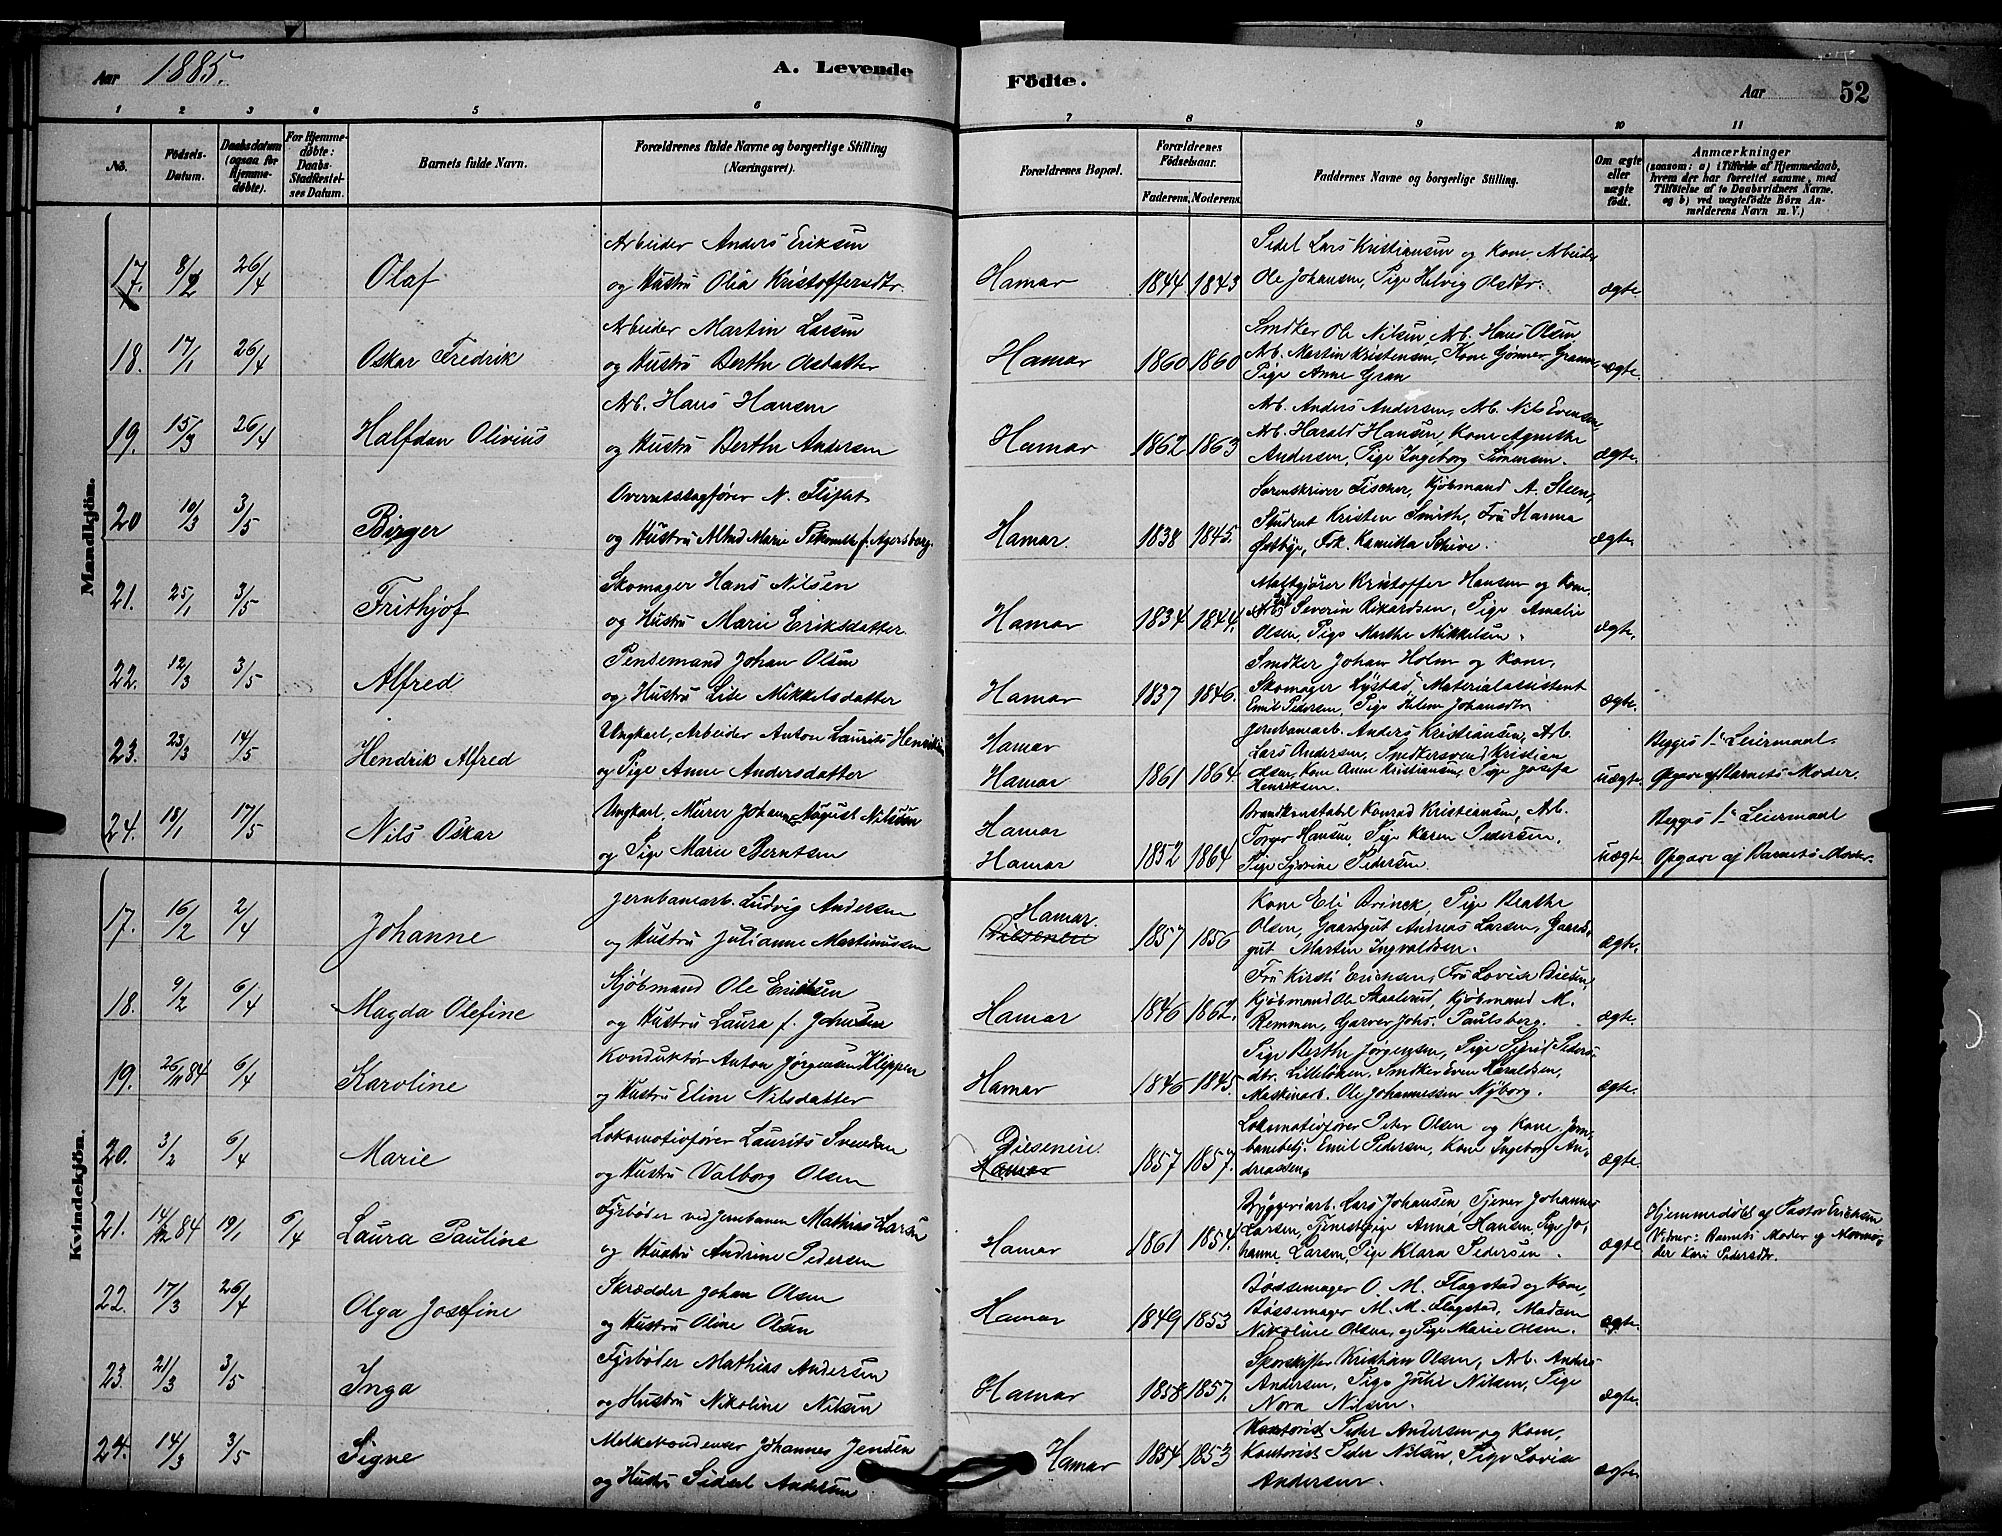 Aar 1885.
A. Levende Födte.
Aar 52
1 2 3 4 5 6 7 8 9 10 11
No.
Födsels-Datum.
Daabsdatum (ogsaa for Hjemmedöbte).
For Hjemmedöbte: Daabs-Stadfæstelses Datum.
Barnets fulde Navn.
Forældrenes fulde Navne og borgerlige Stilling (Næringsvei).
Forældrenes Bopæl.
Forældrenes Födselsaar.
Faderens. Moderens.
Faddernes Navne og borgerlige Stilling.
Om ægte eller uægte födt.
Anmærkninger
(saasom: a) i Tilfælde af Hjemmedaab, hvem der har forrettet samme, med Tilföielse af to Daabsvidners Navne, og b) ved uægtefödte Börn Anmelderens Navn m. V.)
Mandkjön.
17. 8/2 26/4 Olaf
Arbeider Anders Eriksen
og Hustru Olia Kristoffersdtr.
Hamar 1844 1843
Lars Kristiansen og Kone, Arbeider
Ole Johansen, Pige Helvig Olsdtr.
ægte.
18. 17/1 26/4 Oskar Fredrik
Arbeider Martin Larsen
og Hustru Berthe Olsdatter
Hamar 1860 1860
Smdker Ole Nilsen, Arb. Hans Olsen,
Arb. Martin Kristensen, Kone
Pige Anne Gran
ægte.
19. 15/3 26/4 Halfdan Olivius
Arb. Hans Hansen
og Hustru Berthe Andersen
Hamar 1862 1863
Arb. Anders Andersen, Arb. Nils Evensen,
Arb. Harald Hansen, Kone Agnethe
Andersen, Pige Ingeborg Simensen.
ægte.
20 10/3 3/5 Birger
Overretssagfører N. Fliflet
og Hustru Marie f. Agersborg
Hamar. 1838 1845.
Sorenskriver Fischer, Kjøbmand A. Steen,
Student Kristen Smith, Fru Hanna
Østbye, Frk. Kamilla Schive.
ægte.
21. 25/1 3/5 Frithjof
Skomager Hans Nilsen
og Hustru Marie Eriksdatter
Hamar 1834 1844.
Maltgjører Kristoffer Hansen og Kone,
Severin Rikardsen, Pige Amalie
Olsen, Pige Marthe Mikkelsen.
ægte.
22. 12/3 3/5 Alfred
Pensemand Johan Olsen
og Hustru Lise Mikkelsdatter
Hamar 1837 1846.
Smdker Johan Holm og Kone,
Skomager Lystad, Materialassistent
Emil Pedersen, Pige Helene Johansdtr
ægte.
23. 23/3 14/5 Hendrik Alfred
Ungkarl, Arbeider Anton Laurits Henriksen
og Pige Anne Andersdatter
Hamar
Hamar 1861 1864.
Jernbanearb. Anders Kristiansen, Arb.
Lars Andersen, Smdkersvend Kristian
Olsen, Kone Anne Kristiansen, Pige Josefa
Henriksen.
uægte.
Begges 1ste Leiermaal.
Opgave af Barnets Moder.
24. 18/1 17/5 Nils Oskar
Ungkarl, Murer Johan August Nilsson
og Pige Marie Berntsen
Hamar
Hamar 1852 1864
Brandkonstabel Konrad Kristiansen, Arb.
Torger Hansen, Pige Karen Pedersen.
Pige Pedersen
uægte.
Begges 1ste Leiermaal
Opgave af Barnets Moder.
Kvindekjön.
17. 16/2 2/4 Johanne
Jernbanearb. Ludvig Andersen
og Hustru Julianne Martinussen
Hamar.
1857 1856
Kone Eli Brinck, Pige Berthe
Olsen, Gaardgut Andreas Larsen, Gaardsgut
Martin Ingvaldsen.
ægte.
18. 9/2 6/4 Magda Olefine
Kjøbmand Ole Erichsen
og Hustru Laura f. Johnsen
Hamar 1846 1862.
Fru Kirsti Erichsen, Fru Lovise Diesen,
Kjøbmand Ole Skaalerud, Kjøbmand M.
Remmen, Garver Johs. Paulsberg.
ægte.
19. 26/11 84 6/4 Karoline
Konduktør Anton Jørgensen Kleppen
og Hustru Eline Nilsdatter
Hamar 1846 1845.
Pige Berthe Jørgensen, Pige Sigrid Pedersdtr.
Lilleløken, Smdker Even Haraldsen,
Maskinarb. Ole Johannessen Nyborg.
ægte.
20. 3/2 6/4 Marie
Lokomotivfører Laurits Svendsen
og Hustru Valborg Olsen
Disenene.
Hamar 1857 1857.
Lokomotivfører Peter Olsen og Kone, Jernbanebetj.
Emil Pedersen, Kone Ingeborg Andreassen,
ægte.
21. 14/12 84 19/1 6/4 Laura Pauline
Fyrbøder ved Jernbanen Mathias Larsen
og Hustru Andrine Pedersen
Hamar 1861 1854.
Bryggeriarb. Lars Johansen, Tjener Johannes
Larsen, Tjenestpige Anna Hansen, Pige Johanne
Larsen, Pige Klara Pedersen.
ægte
Hjemmedøbt af Pastor Erichsen
Vidner: Barnets Moder og
Kari Pedersdtr.
22. 17/3 26/4 Olga Josefine
Skrædder Johan Olsen
og Hustru Oline Olsen
Hamar 1849 1853
Bøssemager O. M. Flagstad og Kone,
Bøssemager M. M. Flagstad, Madam
Nikoline Olsen, og Pige Marie Olsen.
ægte.
23. 21/3 3/5 Inga
Fyrbøder Mathias Andersen
og Hustru Nikoline Nilsen
Hamar 1858 1857.
Sporskifter Kristian Olsen, Arb. Anders
Andersen, Pige Julie Nilsen, Pige
Nora Nilsen.
ægte.
24. 14/3 3/5 Signe
Melkekondenser Johannes Jensen
og Hustru Andersen
Hamar 1854. 1853
Kontorist Peder Andersen og Kone,
Kontorist Peder Nilsen, Pige Lovise
Andersen.
ægte.